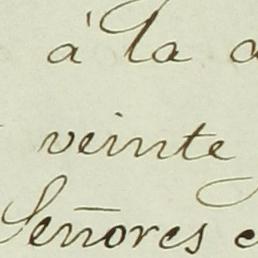 à la
veinte
Señores